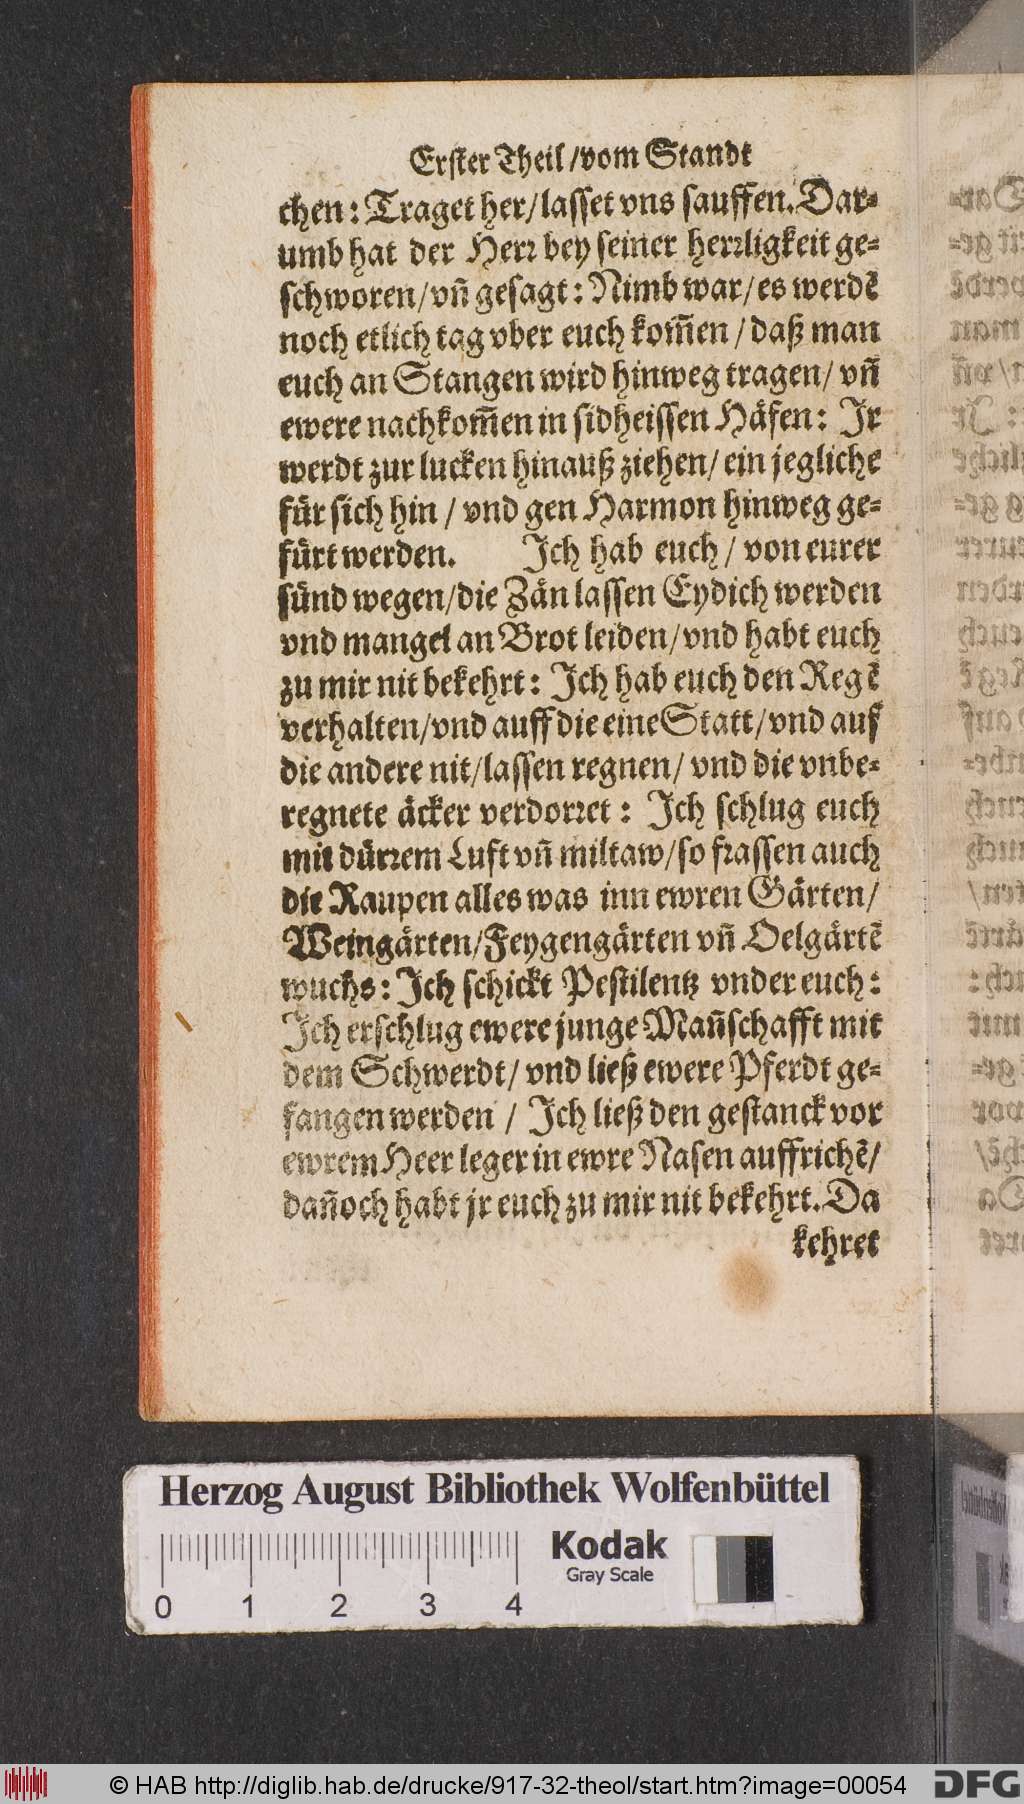 Erster Theil / vom Standt
chen: Traget her / lasset vns sauffen. Dar⸗
umb hat der Herr bey seiner herrligkeit ge⸗
schworen / vñ gesagt: Nimb war / es werdẽ
noch etlich tag vber euch kom̃en / daß man
euch an Stangen wird hinweg tragen / vñ
ewere nachkom̃en in sidheissen Häfen: Jr
werdt zur lucken hinauß ziehen / ein jegliche
für sich hin / vnd gen Harmon hinweg ge⸗
fürt werden. Jch hab euch / von eurer
sünd wegen / die Zän lassen Eydich werden
vnd mangel an Brot leiden / vnd habt euch
zu mir nit bekehrt: Jch hab euch den Regẽ
verhalten / vnd auff die eine Statt / vnd auf
die andere nit / lassen regnen / vnd die vnbe⸗
regnete äcker verdorret: Jch schlug euch
mit dürrem Luft vñ miltaw / so frassen auch
die Raupen alles was inn ewren Gärten /
Weingärten / Feygengärten vñ Oelgärtẽ
wuchs: Jch schickt Pestilentz vnder euch:
Jch erschlug ewere junge Mañschafft mit
dem Schwerdt / vnd ließ ewere Pferdt ge⸗
fangen werden / Jch ließ den gestanck vor
ewrem Heer leger in ewre Nasen auffrichẽ /
dañoch habt jr euch zu mir nit bekehrt. Da
kehret
Herzog August Bibliothek Wolfenbüttel
Kodak
Gray Scale
0 1 2 3 4
© HAB http://diglib.hab.de/drucke/917-32-theol/start.htm?image=00054
DFG